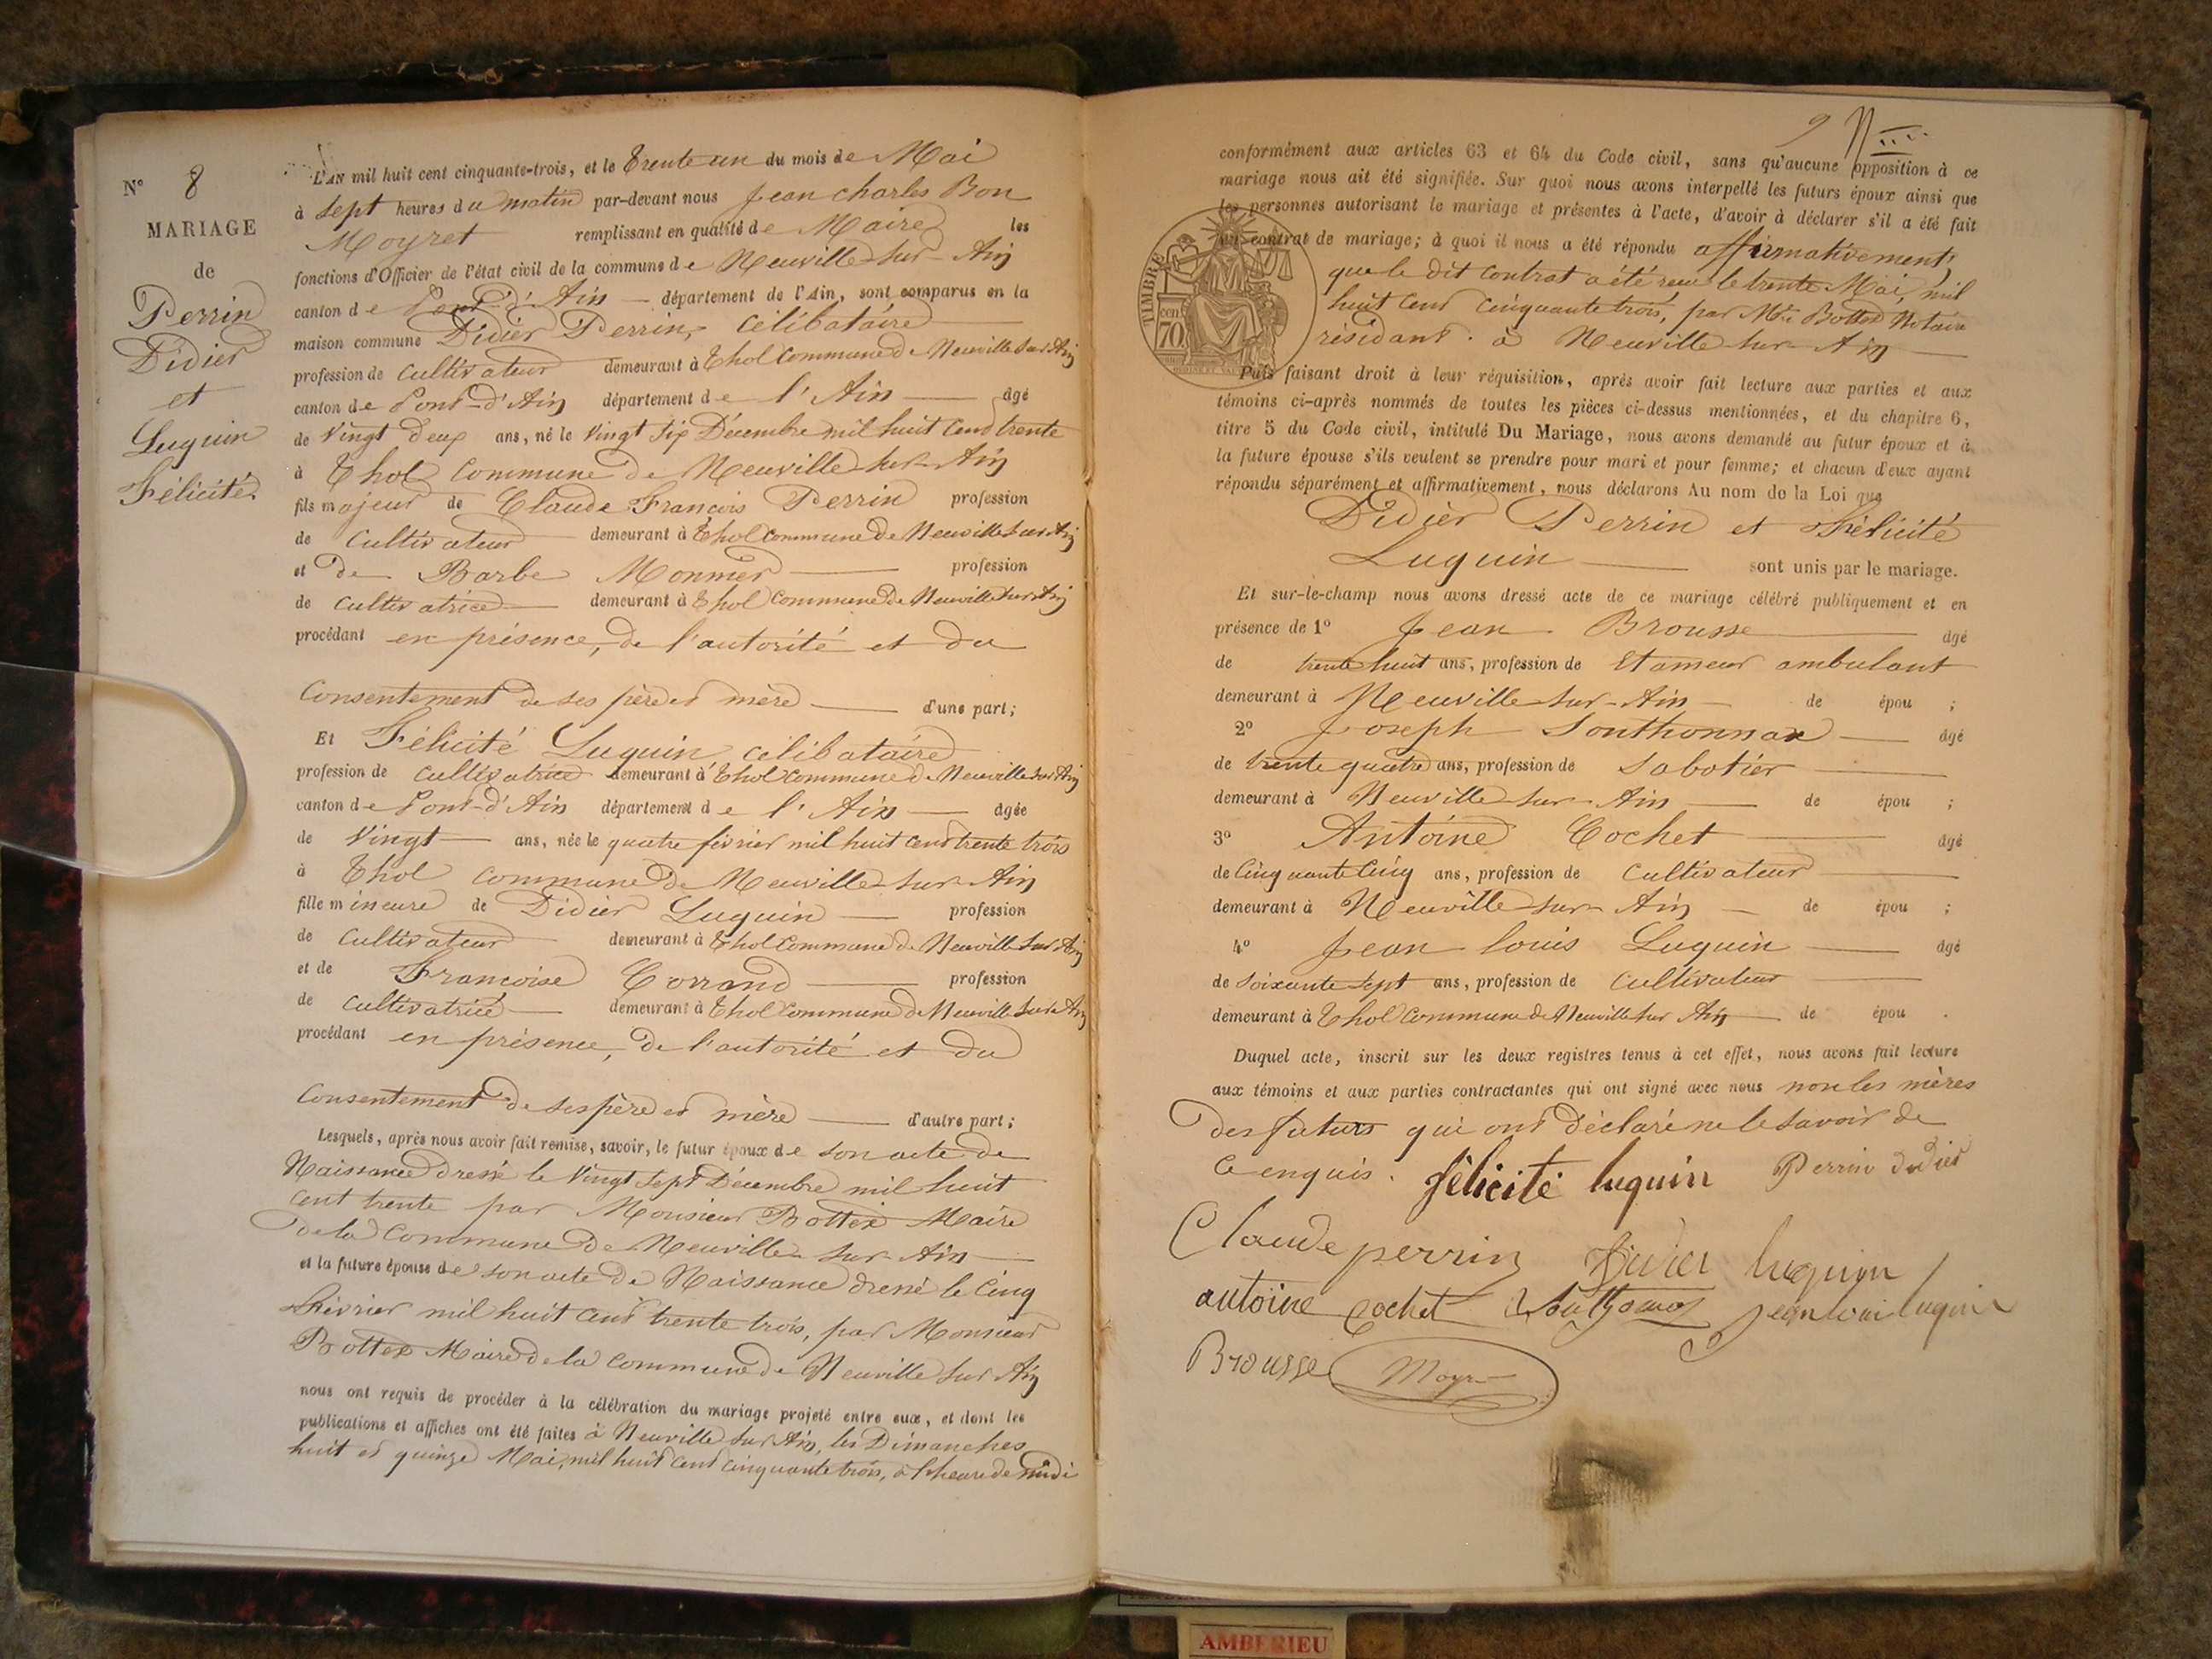 N° 8
MARIAGE
de
Perrin
Didier
et
Luquin
Félicité
L'AN mil huit cent cinquante-trois, et le trente un du mois de Mai
à sept heures du matin par-devant nous Jean charles Bon
Moyret remplissant en qualité de Maire les
fonctions d'Officier de l'état civil de la commune de Neuville-sur-Ain
canton de Pont-d'Ain département de l'Ain, sont comparus en la
maison commune Didier Perrin, célibataire
profession de cultivateur demeurant à Thol commune de Neuville sur Ain
canton de Pont-d'Ain département de l'Ain âgé
de vingt deux ans, né le vingt six Décembre mil huit cent trente
à Thol commune de Neuville-sur-Ain
fils majeur de Claude François Perrin profession
de cultivateur demeurant à Thol commune de Neuville sur Ain
et de Barbe Monnier profession
de cultivatrice demeurant à Thol commune de Neuville sur Ain
procédant en présence, de l'autorité et du
consentement de ses père et mère d'une part;
Et Félicité Luquin célibataire
profession de cultivatrice demeurant à Thol commune de Neuville sur Ain
canton de Pont-d'Ain département de l'Ain âgée
de vingt ans, née le quatre février mil huit cent trente trois
à Thol commune de Neuville-sur-Ain
fille mineure de Didier Luquin profession
de cultivateur demeurant à Thol commune de Neuville sur Ain
et de Françoise Corrand profession
de cultivatrice demeurant à Thol commune de Neuville sur Ain
procédant en présence, de l'autorité et du
consentement de ses père et mère d'autre part;
Lesquels, après nous avoir fait remise, savoir, le futur époux de son acte de
Naissance dressé le vingt sept Décembre mil huit
cent trente par Monsieur Bottex Maire
de la commune de Neuville-sur-Ain
et la future épouse de son acte de Naissance dressé le cinq
Février mil huit cent trente trois, par Monsieur
Bottex Maire de la commune de Neuville sur Ain
nous ont requis de procéder à la célébration du mariage projeté entre eux, et dont les
publications et affiches ont été faites à Neuville sur Ain, les Dimanches
huit et quinze Mai, mil huit cent cinquante trois, à l'heure de midi
9
conformément aux articles 63 et 64 du Code civil, sans qu'aucune opposition à ce
mariage nous ait été signifiée. Sur quoi nous avons interpellé les futurs époux ainsi que
les personnes autorisant le mariage et présentes à l'acte, d'avoir à déclarer s'il a été fait
un contrat de mariage; à quoi il nous a été répondu affirmativement,
que le dit contrat a été reçu le trente Mai, mil
huit cent cinquante trois, par Me Bottex Notaire
résidant à Neuville sur Ain
TIMBRE
cen
70
Puis faisant droit à leur réquisition, après avoir fait lecture aux parties et aux
témoins ci-après nommés de toutes les pièces ci-dessus mentionnées, et du chapitre 6,
titre 5 du Code civil, intitulé Du Mariage, nous avons demandé au futur époux et à
la future épouse s'ils veulent se prendre pour mari et pour femme; et chacun d'eux ayant
répondu séparément et affirmativement, nous déclarons Au nom de la Loi que
Didier Perrin et Félicité
Luquin sont unis par le mariage.
Et sur-le-champ nous avons dressé acte de ce mariage célébré publiquement et en
présence de 1° Jean Brousse âgé
de trente huit ans, profession de Etameur ambulant
demeurant à Neuville-sur-Ain de épou ;
2° Joseph Sonthonnax âgé
de trente quatre ans, profession de Sabotier
demeurant à Neuville-sur-Ain de épou ;
3° Antoine Cochet âgé
de cinquante cinq ans, profession de cultivateur
demeurant à Neuville-sur-Ain de épou ;
4° Jean louis Luquin âgé
de soixante sept ans, profession de cultivateur
demeurant à Thol commune de Neuville sur Ain de épou .
Duquel acte, inscrit sur les deux registres tenus à cet effet, nous avons fait lecture
aux témoins et aux parties contractantes qui ont signé avec nous non les mères
des futurs qui ont déclaré ne le savoir de
ce enquis. félicité luquin Perrin didier
Claude perrin Didier luquin
antoine cochet Sonthonax jean louis luquin
Brousse Moyret
AMBERIEU